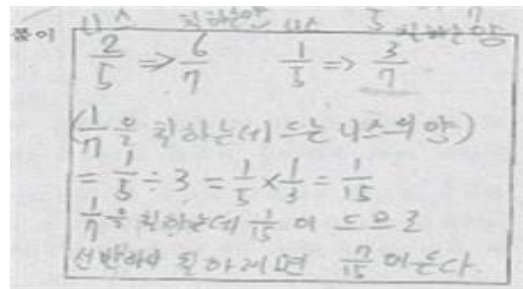 니스 칠하는양 니스 칠하는양
풀이 2/5 => 6/7 1/5 => 3/7
(1/7을 칠하는데 드는 니스의 양)
= 1/5 ÷ 3 = 1/5 × 1/3 = 1/15
1/7을 칠하는데 1/15 이 드므로
선반하나 칠하려면 7/15 이 든다.